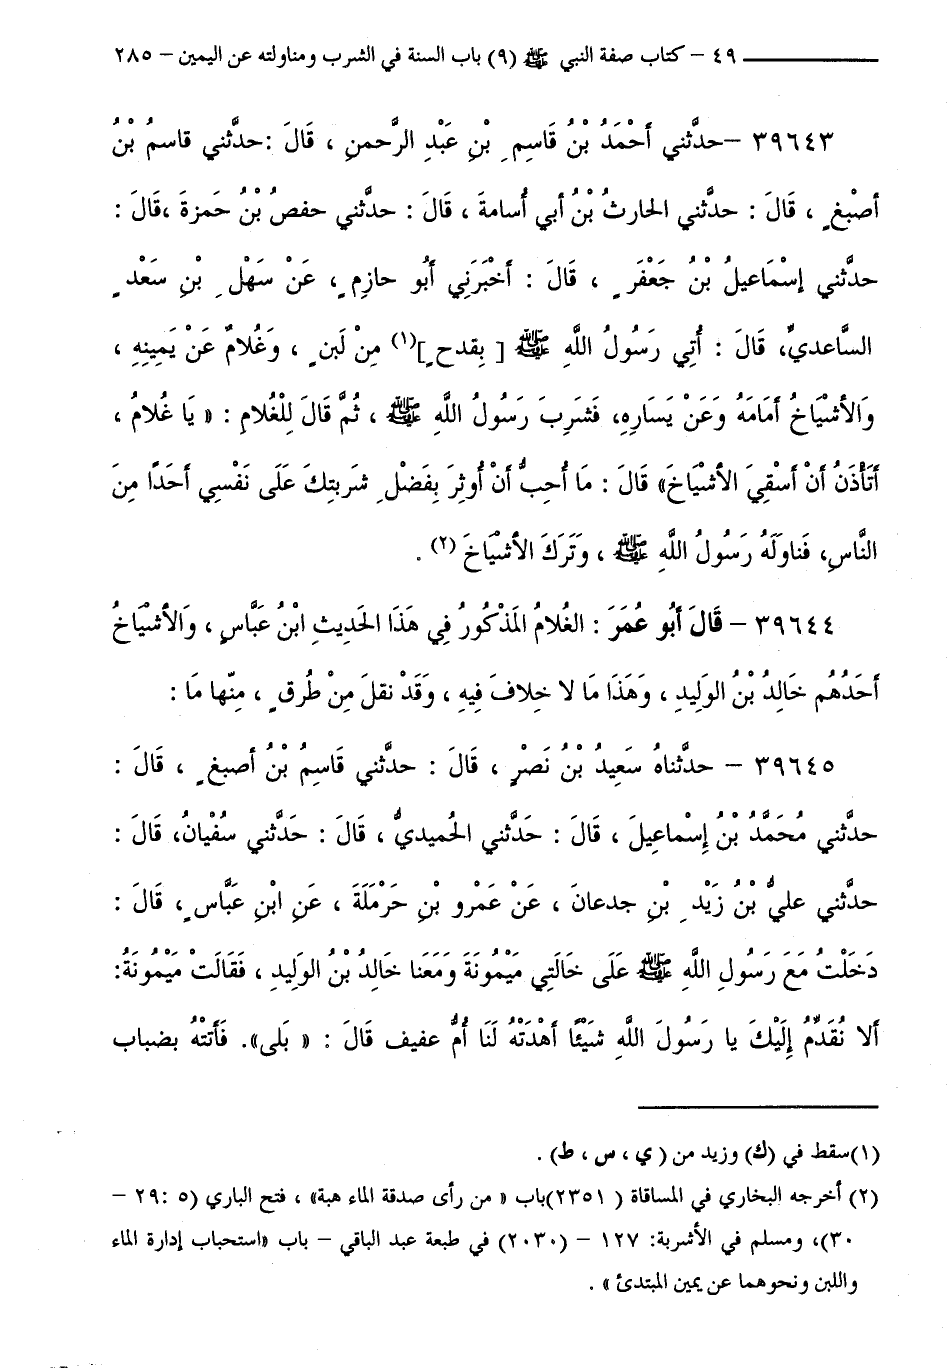 ٤٩ – كتاب صفة النبي ﷺ (٩) باب السنة في الشرب ومناولته عن اليمين – ٢٨٥
٣٩٦٤٣ –حدثَّني أَحْمَدُ بْنُ قَاسِمِ بْنِ عَبْدِ الرَّحمنِ ، قَالَ :حدثَّني قاسمُ بْنُ
أصْبغٍ ، قَالَ : حدثَّني الحارثُ بْنُ أبي أُسامةَ ، قَالَ : حدثَّني حفصُ بْنُ حَمزةَ ،قَالَ :
حدثَّني إِسْمَاعيلُ بْنُ جَعْفَرٍ ، قَالَ : أَخْبَرَنِي أَبُو حازِمٍ ، عَنْ سَهْلِ بْنِ سَعْدٍ
السَّاعديِّ، قَالَ : أُتِي رَسُولُ اللَّهِ ﷺ [ بِقدحٍ ](١) مِنْ لَبنٍ ، وَغُلامٌ عَنْ يَمِينِهِ ،
وَالأشْيَاخُ أَمَامَهُ وَعَنْ يَسَارِهِ، فَشَرِبَ رَسُولُ اللَّهِ ﷺ ، ثُمَّ قَالَ لِلْغُلامِ : « يَا غُلامُ ،
أَتَأْذَنُ أَنْ أَسْقِيَ الأشْيَاخَ» قَالَ : مَا أُحِبُّ أَنْ أُوثِرَ بِفَضْلِ شَربتِكَ عَلَى نَفْسِي أَحَدًا مِنَ
النَّاسِ، فَناوَلَهُ رَسُولُ اللَّهِ ﷺ ، وَتَرَكَ الأشْيَاخَ (٢) .
٣٩٦٤٤ – قَالَ أَبُو عُمَرَ : الغُلامُ المَذْكُورُ فِي هَذَا الحَديثِ ابْنُ عَبَّاسٍ ، وَالأشْيَاخُ
أَحَدُهُم خَالِدُ بْنُ الوَلِيدِ ، وَهَذَا مَا لا خِلافَ فِيهِ ، وَقَدْ نقلَ مِنْ طُرقٍ ، مِنْها مَا :
٣٩٦٤٥ – حدثَّناهُ سَعِيدُ بْنُ نَصْرٍ ، قَالَ : حدثَّني قَاسِمُ بْنُ أصبغٍ ، قَالَ :
حدثَّني مُحَمَّدُ بْنُ إِسْماعِيلَ ، قَالَ : حَدثَّني الحُميديُّ ، قَالَ : حَدَّثني سُفْيانُ، قَالَ :
حدثَّني عليُّ بْنُ زَيْدِ بْنِ جدعانَ ، عَنْ عَمْرِو بْنِ حَرْمَلَةَ ، عَنِ ابْنِ عَبَّاسٍ ، قَالَ :
دَخَلْتُ مَعَ رَسُولِ اللَّهِ ﷺ عَلَى خَالَتِي مَيْمُونَةَ وَمَعَنا خَالدُ بْنُ الوَلِيدِ ، فَقَالَتْ مَيْمُونَةُ:
أَلا نُقَدِّمُ إِلَيْكَ يا رَسُولَ اللَّهِ شَيْئًا أَهْدَتْهُ لَنَا أُمُّ عفيف قَالَ : « بَلى». فَأَتتْهُ بضباب
(١)سقط في (ك) وزيد من ( ي ، س ، ط) .
(٢) أخرجه البخاري في المساقاة ( ٢٣٥١)باب « من رأى صدقة الماء هبة» ، فتح الباري (٥ :٢٩ –
٣٠)، ومسلم في الأشربة: ١٢٧ – (٢٠٣٠) في طبعة عبد الباقي – باب «استحباب إدارة الماء
واللبن ونحوهما عن يمين المبتدئ » .